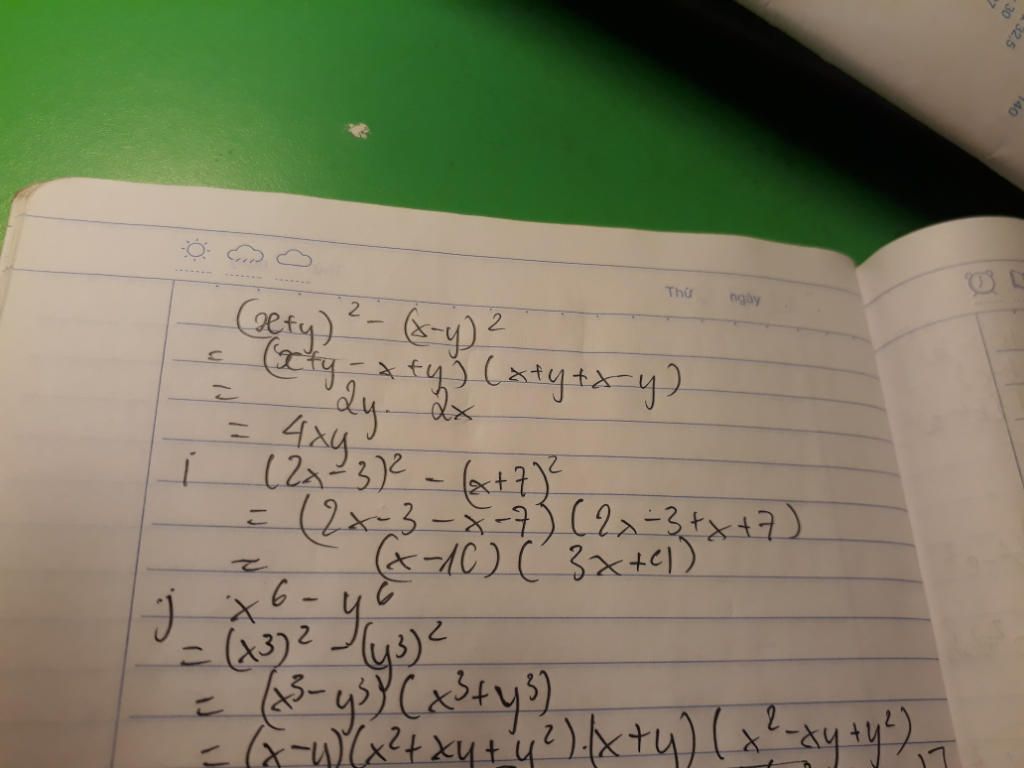 32.5
140
Thứ ngày
(x+y)² - (x-y)²
= (x+y - x+y) (x+y+x-y)
= 2y. 2x
= 4xy
i (2x-3)² - (x+7)²
= (2x-3-x-7) (2x-3+x+7)
= (x-10) ( 3x+4)
j x⁶ - y⁶
= (x³)² - (y³)²
= (x³-y³) (x³+y³)
= (x-y)(x²+xy+y²).(x+y) (x²-xy+y²)